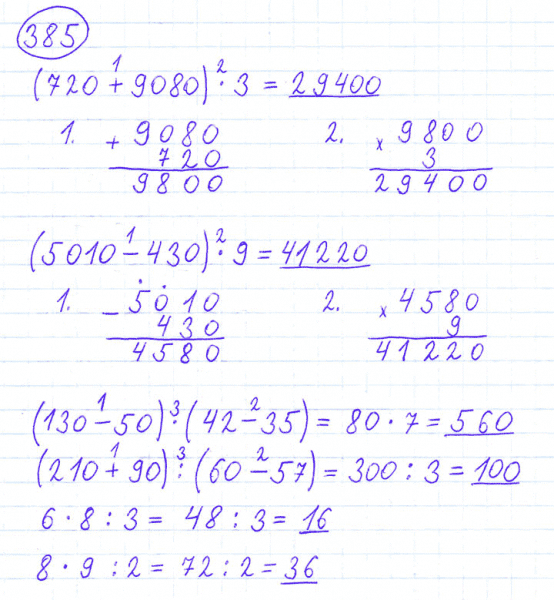 385
(720 + 9080) · 3 = 29400
1. + 9080 2. × 9800
720 3
9800 29400
(5010 - 430) · 9 = 41220
1. - 5010 2. × 4580
430 9
4580 41220
(130 - 50) · (42 - 35) = 80 · 7 = 560
(210 + 90) : (60 - 57) = 300 : 3 = 100
6 · 8 : 3 = 48 : 3 = 16
8 · 9 : 2 = 72 : 2 = 36